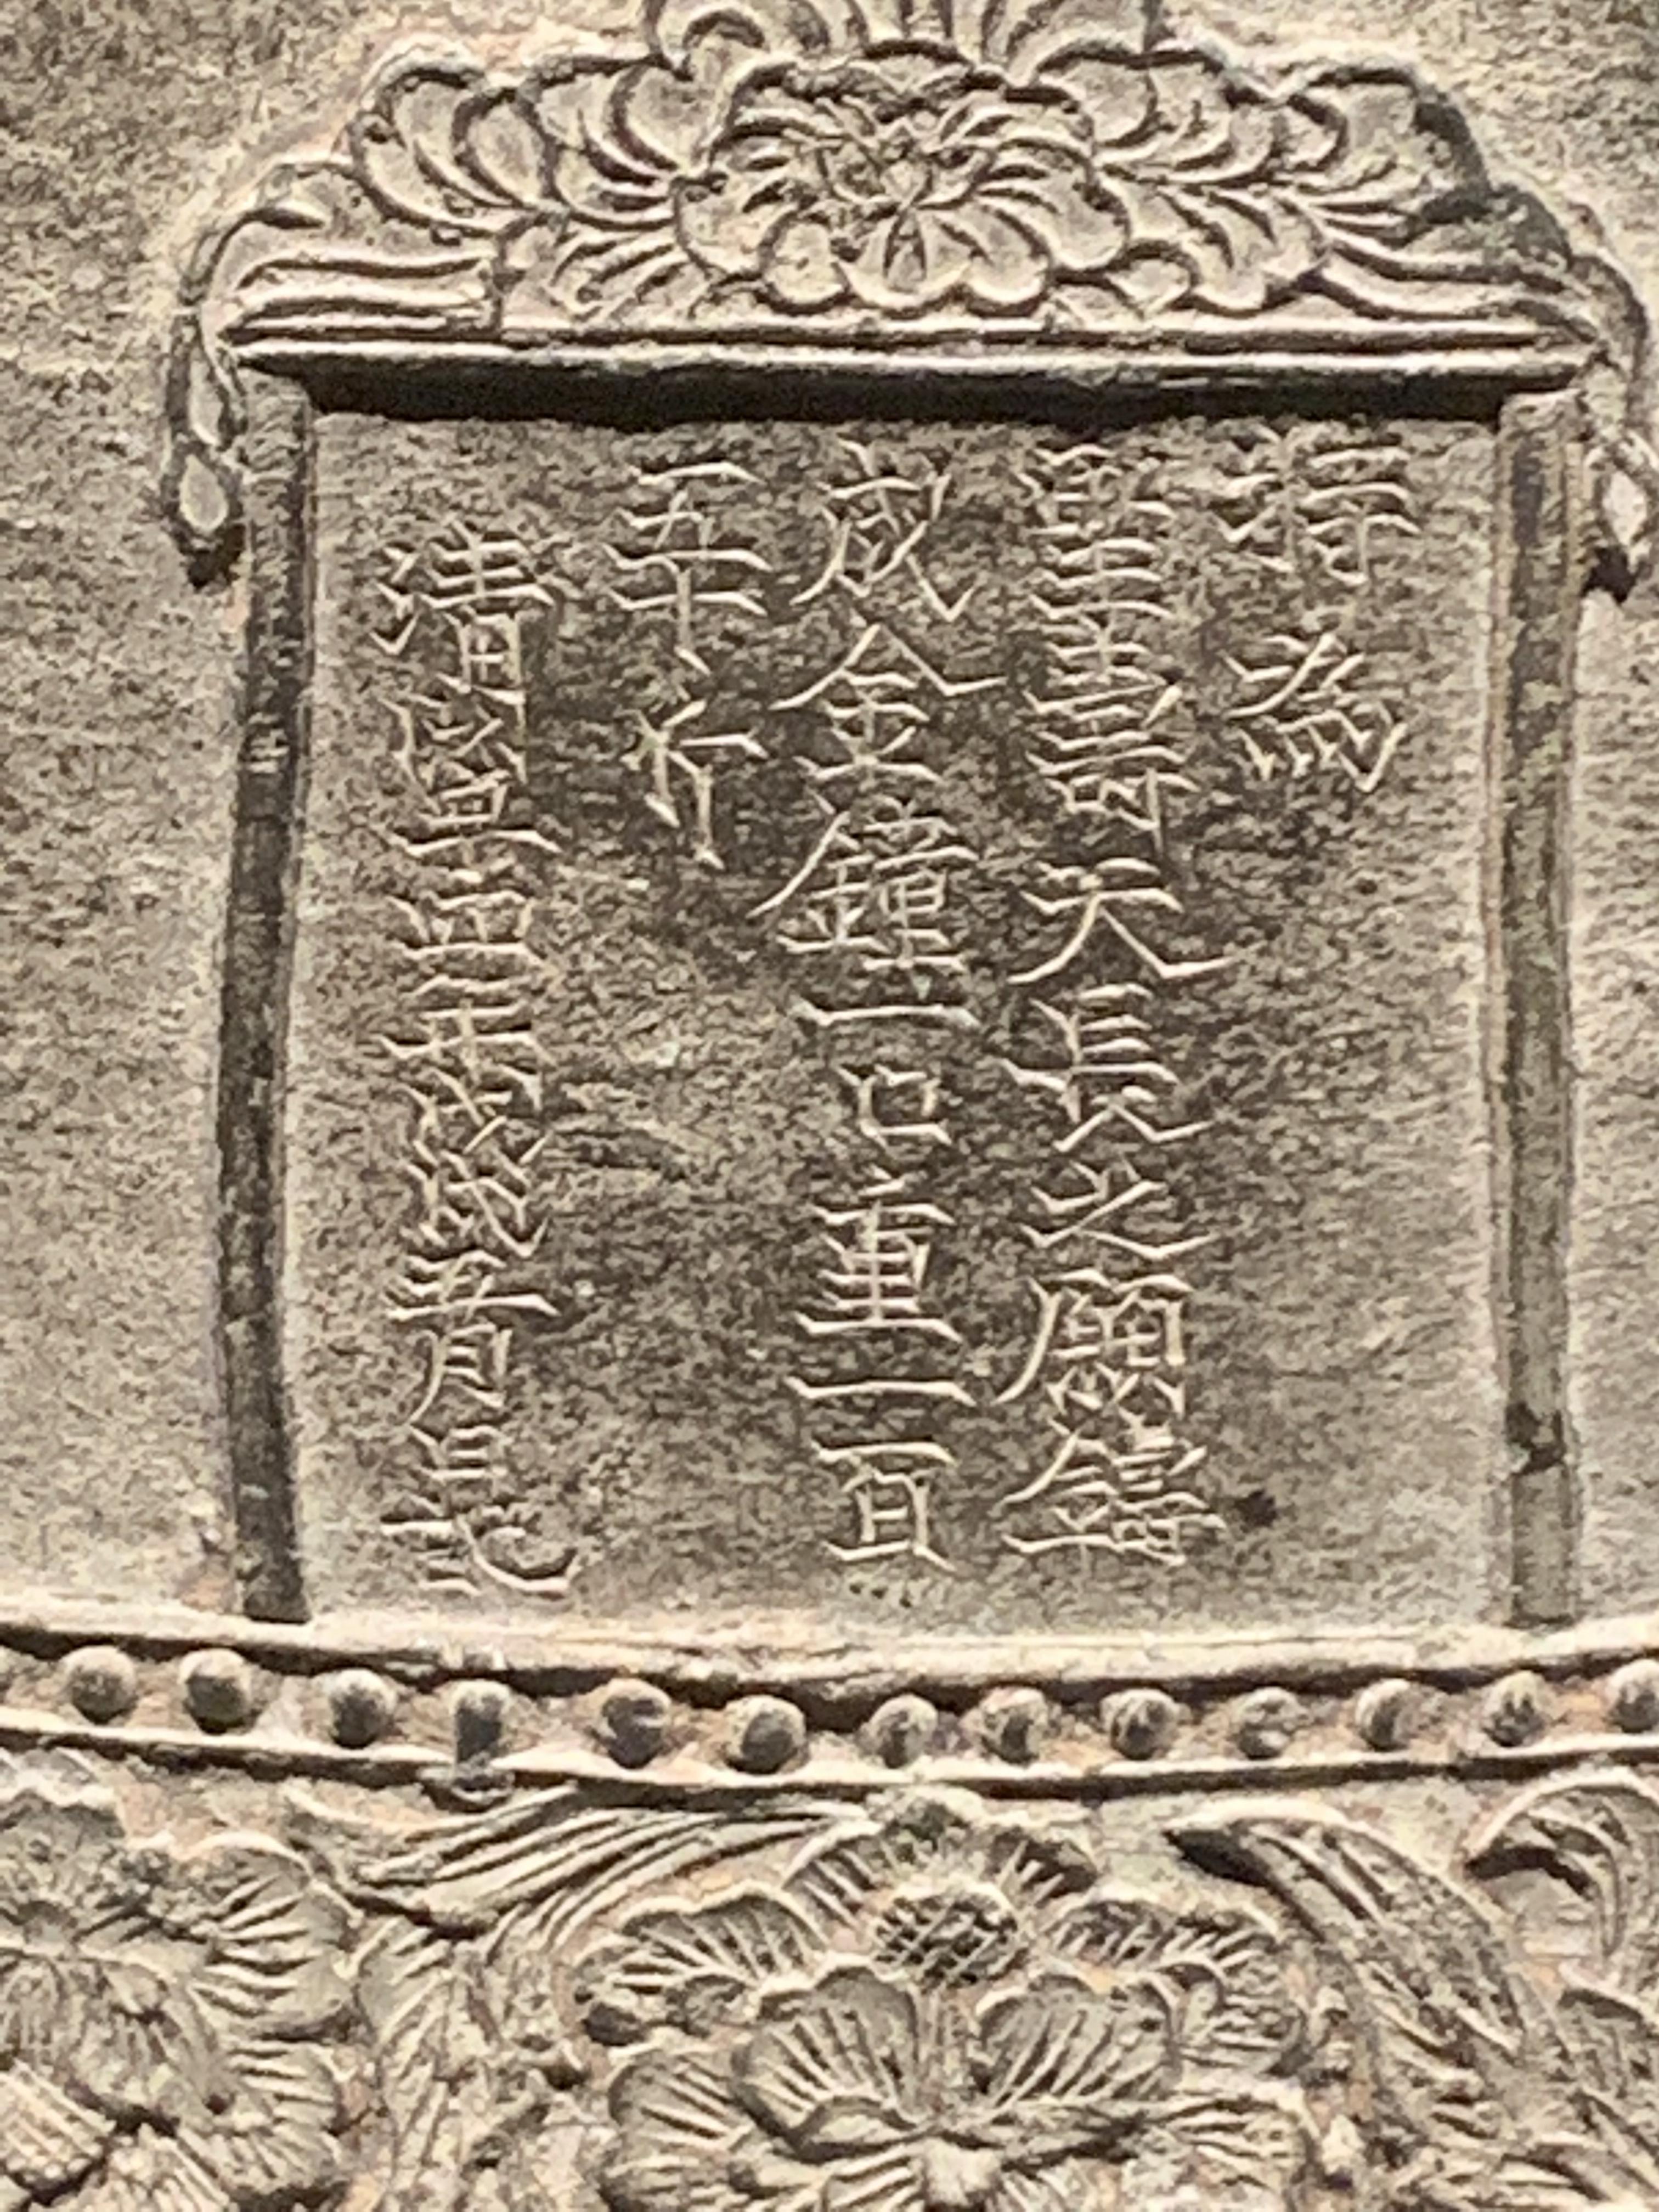 特為
聖壽天長之願鑄
成金鐘一口重一百
五十斤
清寧四年戊戌五月日記